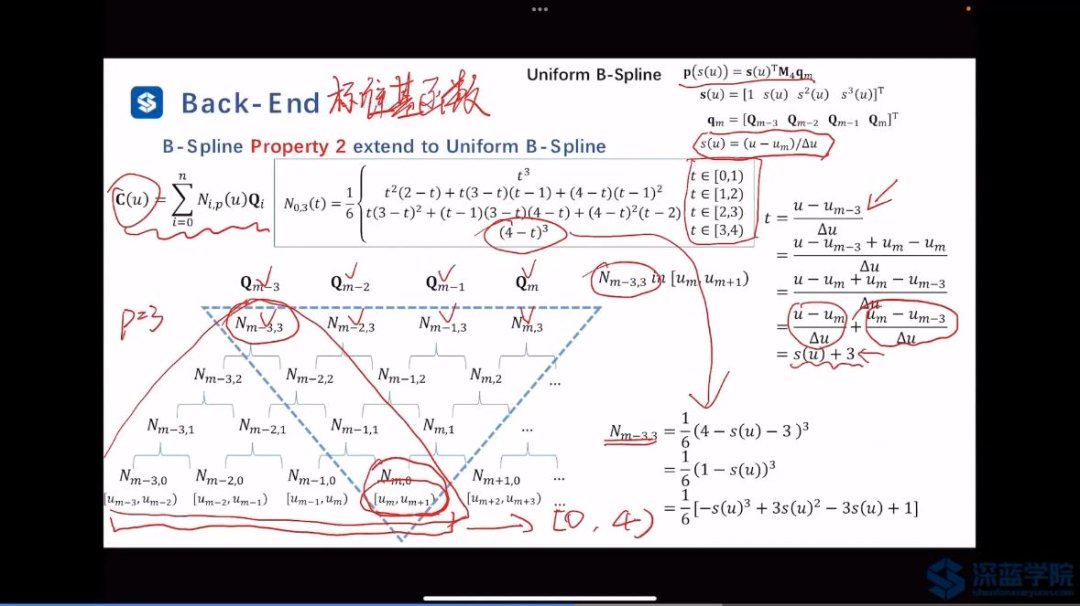 Uniform B-Spline p(s(u)) = s(u)ᵀM₄qₘ
s(u) = [1 s(u) s²(u) s³(u)]ᵀ
qₘ = [Qₘ₋₃ Qₘ₋₂ Qₘ₋₁ Qₘ]ᵀ
s(u) = (u − uₘ)/Δu
Back-End 标准基函数
B-Spline Property 2 extend to Uniform B-Spline
C(u) = ∑ⁿᵢ₌₀ Nᵢ,ₚ(u)Qᵢ
N₀,₃(t) = 1/6 {
t³ t ∈ [0,1)
t²(2 − t) + t(3 − t)(t − 1) + (4 − t)(t − 1)² t ∈ [1,2)
t(3 − t)² + (t − 1)(3 − t)(4 − t) + (4 − t)²(t − 2) t ∈ [2,3)
(4 − t)³ t ∈ [3,4)
t = (u − uₘ₋₃)/Δu
= (u − uₘ₋₃ + uₘ − uₘ)/Δu
= (u − uₘ + uₘ − uₘ₋₃)/Δu
= (u − uₘ)/Δu + (uₘ − uₘ₋₃)/Δu
= s(u) + 3
Qₘ₋₃ Qₘ₋₂ Qₘ₋₁ Qₘ Nₘ₋₃,₃ in [uₘ, uₘ₊₁)
p=3
Nₘ₋₃,₃ Nₘ₋₂,₃ Nₘ₋₁,₃ Nₘ,₃
Nₘ₋₃,₂ Nₘ₋₂,₂ Nₘ₋₁,₂ Nₘ,₂ ...
Nₘ₋₃,₁ Nₘ₋₂,₁ Nₘ₋₁,₁ Nₘ,₁ ...
Nₘ₋₃,₀ Nₘ₋₂,₀ Nₘ₋₁,₀ Nₘ,₀ Nₘ₊₁,₀ ...
[uₘ₋₃, uₘ₋₂) [uₘ₋₂, uₘ₋₁) [uₘ₋₁, uₘ) [uₘ, uₘ₊₁) [uₘ₊₂, uₘ₊₃) ...
[0, 4)
Nₘ₋₃,₃ = 1/6 (4 − s(u) − 3 )³
= 1/6 (1 − s(u))³
= 1/6 [−s(u)³ + 3s(u)² − 3s(u) + 1]
深蓝学院
shenlanxueyuan.com